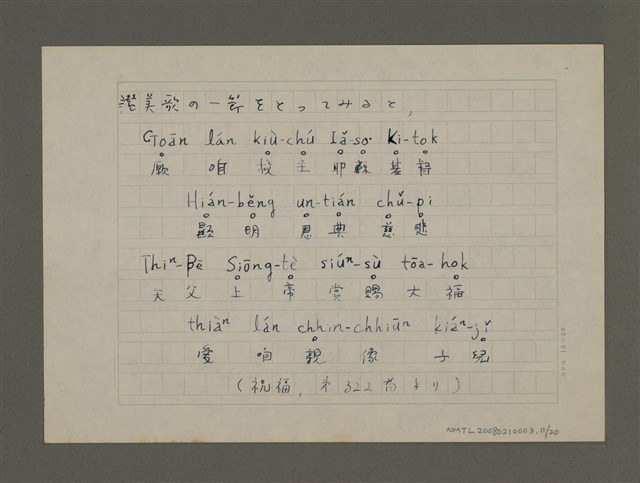 讃美歌の一節をとってみると,
Goān lán kiù-chú Iâ-so· Ki-tok
願 咱 救 主 耶 穌 基 督
Hián-bêng un-tián chû-pi
顯 明 恩 典 慈 悲
Thiⁿ-Pē Siōng-tè siúⁿ-sù tōa-hok
天 父 上 帝 賞 賜 大 福
thiàⁿ lán chhin-chhiūⁿ kiáⁿ-jî
愛 咱 親 像 子 兒
(祝福, 第322首より)
NMTL20080210003.11/20